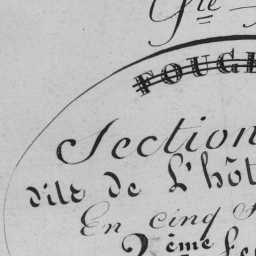 Ste
FOUG
Section
dite de L'hôt
En cinq
2ème